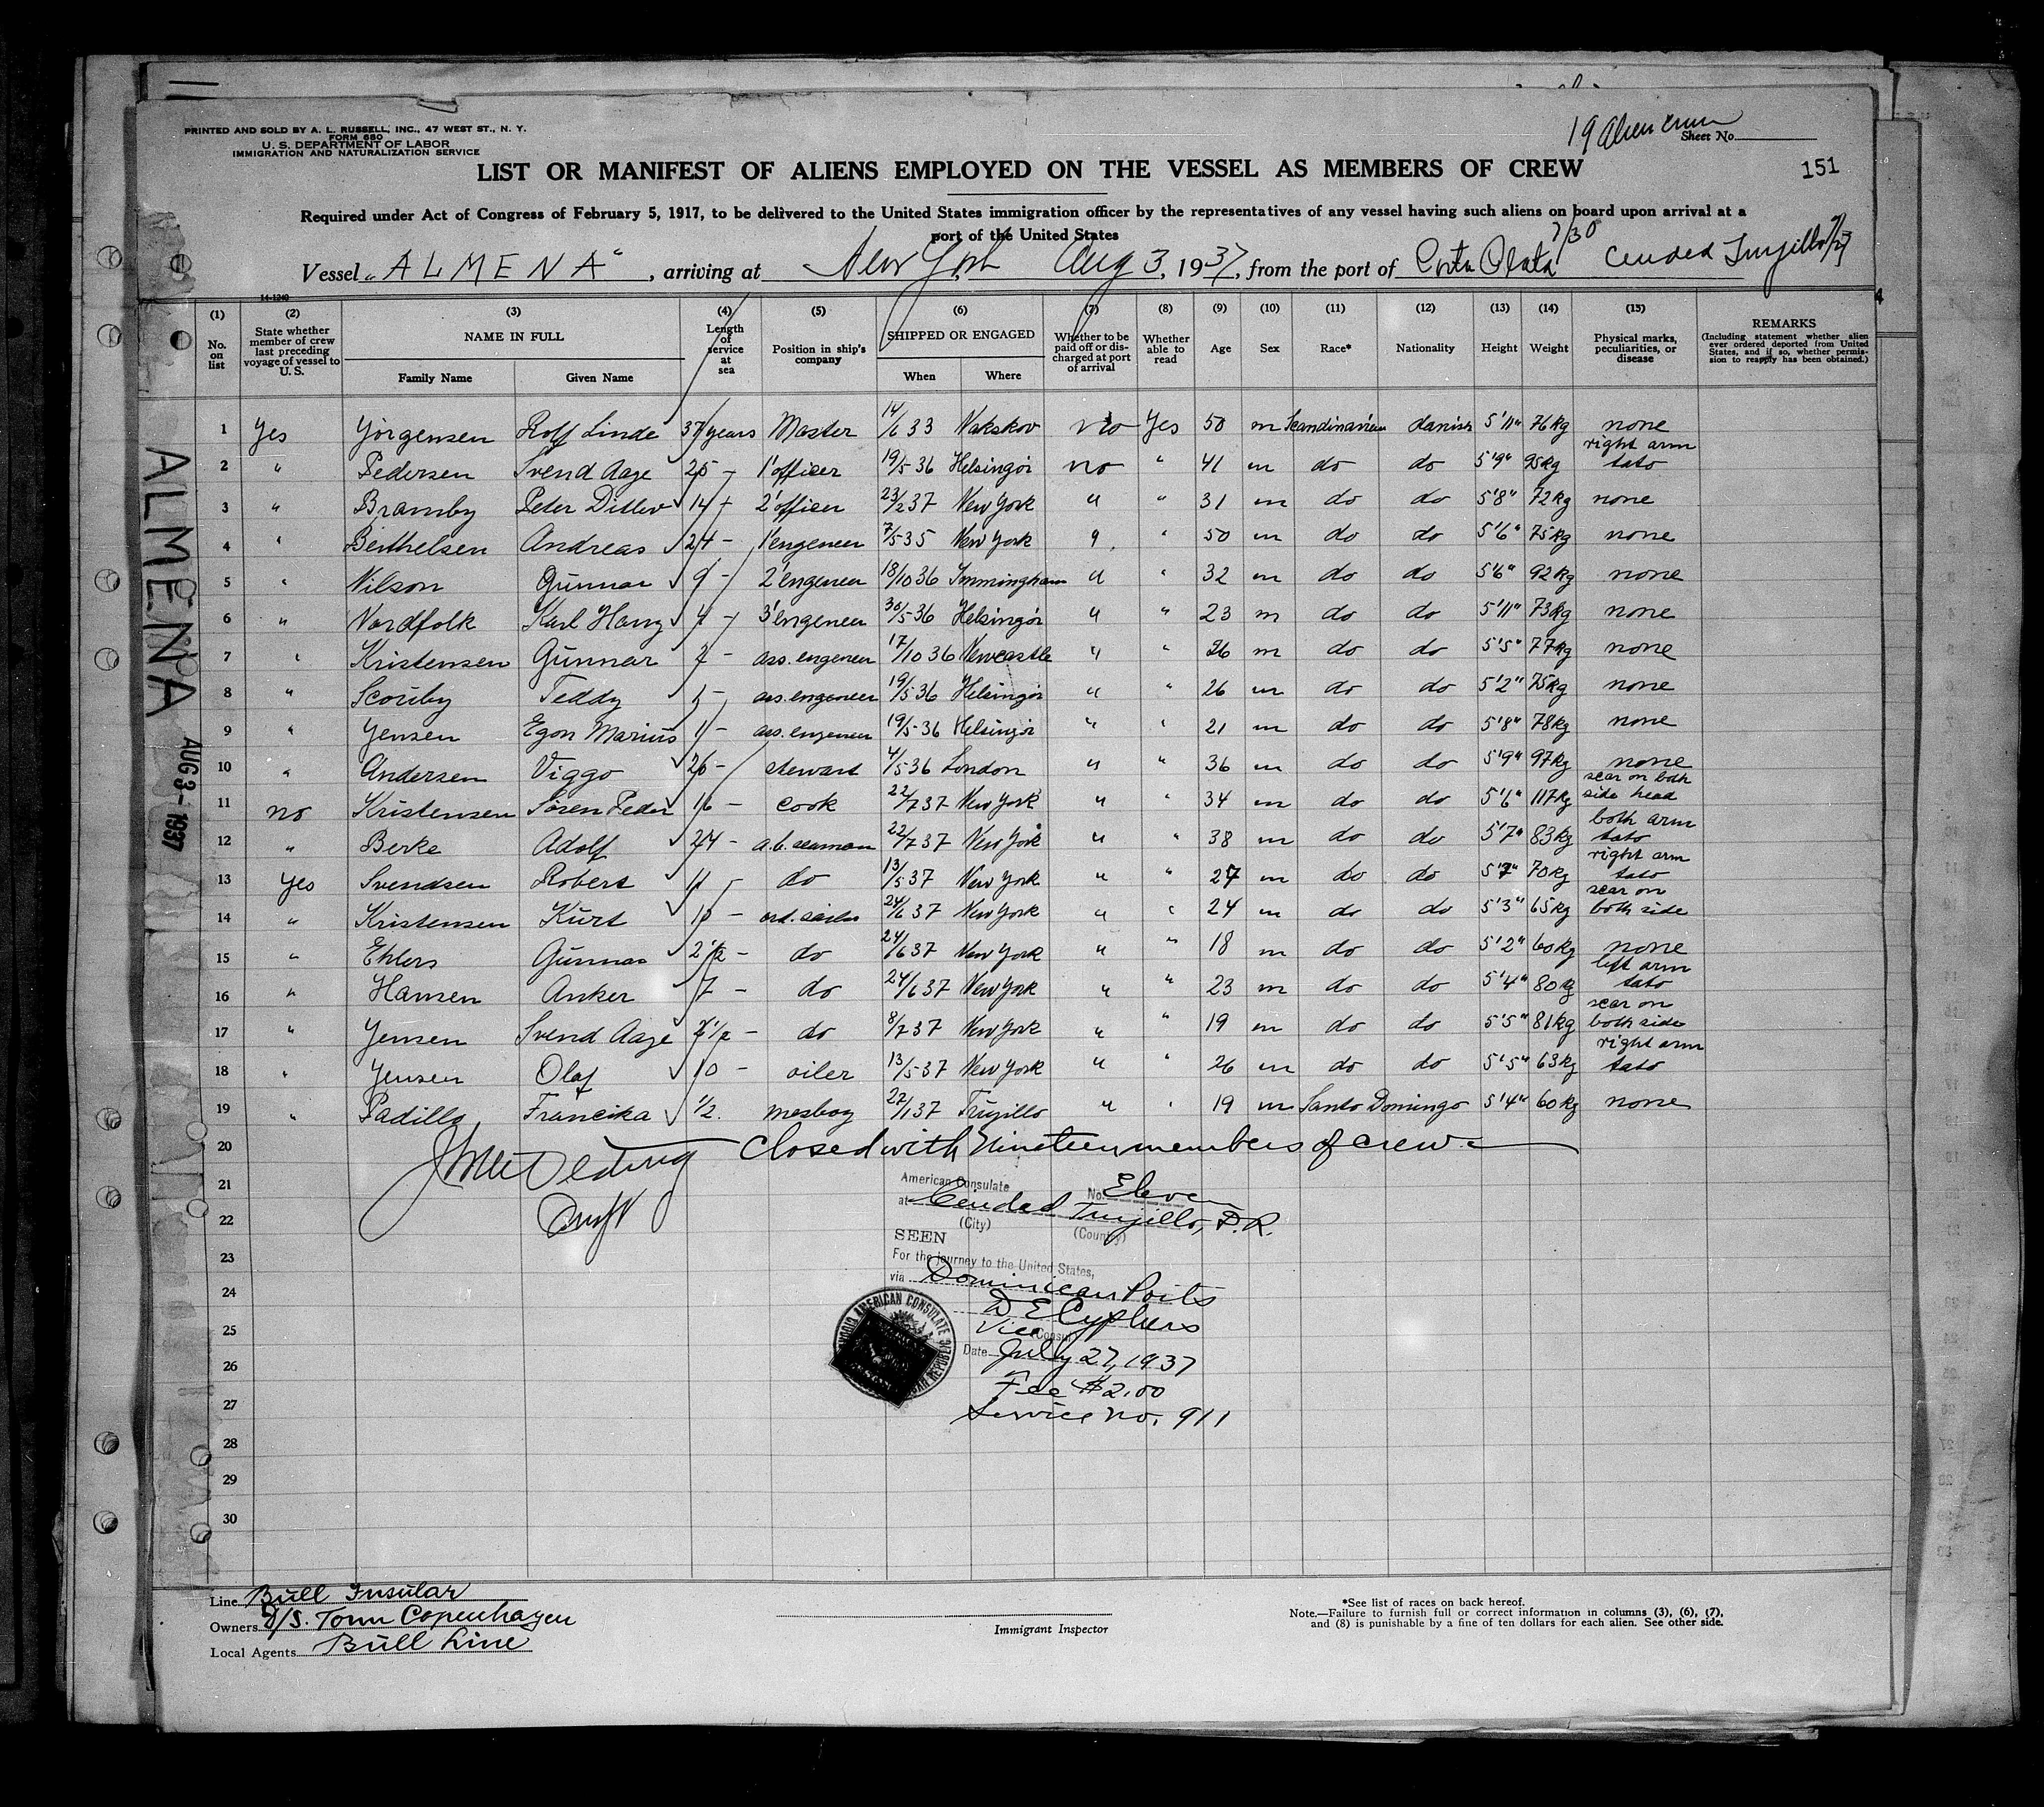 19 alien crew
PRINTED AND SOLD BY A. L. RUSSELL, INC., 47 WEST ST., N. Y.
FORM 680
U. S. DEPARTMENT OF LABOR
IMMIGRATION AND NATURALIZATION SERVICE
Sheet No.
LIST OR MANIFEST OF ALIENS EMPLOYED ON THE VESSEL AS MEMBERS OF CREW
151
Required under Act of Congress of February 5, 1917, to be delivered to the United States immigration officer by the representatives of any vessel having such aliens on board upon arrival at a
port of the United States
Vessel "ALMENA", arriving at New York, Aug 3, 1937, from the port of Porta Plata 7/30 Ciudad Trujillo 7/27
14-1240
(1) (2) (3) (4) (5) (6) (7) (8) (9) (10) (11) (12) (13) (14) (15)
No. on list
State whether member of crew last preceding voyage of vessel to U. S.
NAME IN FULL
Family Name Given Name
Length of service at sea
Position in ship's company
SHIPPED OR ENGAGED
When Where
Whether to be paid off or discharged at port of arrival
Whether able to read
Age Sex Race* Nationality Height Weight
Physical marks, peculiarities, or disease
REMARKS
(Including statement whether alien ever ordered deported from United States, and if so, whether permission to reapply has been obtained.)
1 Yes Yörgensen Rolf Linde 37 years Master 14/6 33 Nakskov no Yes 50 m Scandinavien danish 5'11" 76kg none
2 " Pedersen Svend Aage 25 - 1'officer 19/5-36 Helsingör no " 41 m do do 5'9" 95kg right arm tato
3 " Bramby Peter Ditlev 14 - 2'officer 23/2 37 New York " " 31 m do do 5'8" 72kg none
4 " Berthelsen Andreas 24 - 1'engeneer 7/5 35 New York " " 50 m do do 5'6" 75kg none
5 " Nilson Gunnar 9 - 2'engeneer 18/10 36 Immingham " " 32 m do do 5'6" 92kg none
6 " Nordfolk Karl Harry 4 - 3'engeneer 30/5-36 Helsingör " " 23 m do do 5'11" 73kg none
7 " Kristensen Gunnar 2 - ass. engeneer 17/10 36 Newcastle " " 26 m do do 5'5" 77kg none
8 " Scouby Teddy 5 - ass. engeneer 19/5 36 Helsingör " " 26 m do do 5'2" 75kg none
9 " Yensen Egon Marius 1 - ass. engeneer 19/5-36 Helsingör " " 21 m do do 5'8" 78kg none
10 " Andersen Viggo 26 - stewart 4/5 36 London " " 36 m do do 5'9" 97kg none
11 no Kristensen Sören Peder 16 - cook 22/7 37 New York " " 34 m do do 5'6" 117kg scar on both side head
12 " Berke Adolf 24 - a.b. seaman 22/7 37 New York " " 38 m do do 5'7" 83kg both arm tato
13 Yes Svendsen Robert 11 - do 13/5 37 New York " " 27 m do do 5'7" 70kg right arm tato
14 " Kristensen Kurt 10 - ord. sailer 24/6 37 New York " " 24 m do do 5'3" 65kg scar on both side
15 " Ehlers Gunnar 2 1/2 - do 24/6 37 New York " " 18 m do do 5'2" 60kg none
16 " Hansen Anker 7 - do 24/6 37 New York " " 23 m do do 5'4" 80kg left arm tato
17 " Yensen Svend Aage 2 1/2 - do 8/7 37 New York " " 19 m do do 5'5" 81kg scar on both side
18 " Yensen Olaf 10 - oiler 13/5-37 New York " " 26 m do do 5'5" 63kg right arm tato
19 " Padillo Francika 1/2. mesboy 27/1 37 Trujillo " " 19 m Santo Domingo 5'4" 60kg none
20 Closed with Nineteen members of crew.
21
22
23
24
25
26
27
28
29
30
American Consulate No. Eleven
at Ciudad Trujillo, D.R.
(City) (Country)
SEEN
For the journey to the United States,
via Dominican Ports
D E Cyphers
Vice (Consul)
Date July 27, 1937
Fee $2.00
Service no. 911
AMERICAN CONSULATE
ALMENA
AUG 3 - 1937
Line Bull Insular
Owners D/S. Torm Copenhagen
Local Agents Bull Line
Immigrant Inspector
*See list of races on back hereof.
Note.—Failure to furnish full or correct information in columns (3), (6), (7),
and (8) is punishable by a fine of ten dollars for each alien. See other side.